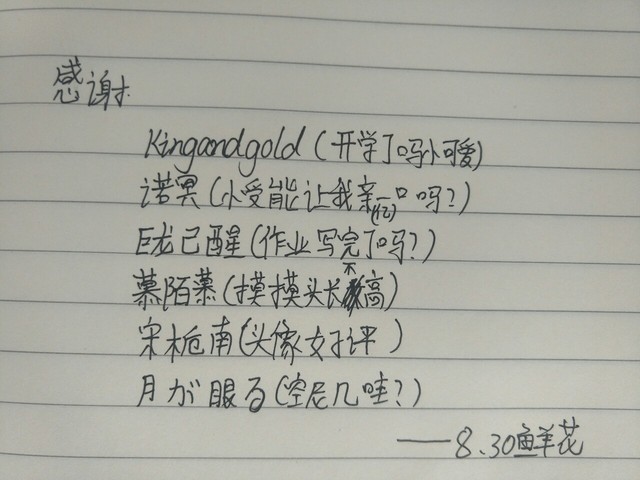 感谢
Kingandgold（开学了吗小可爱）
诺冥（小受能让我亲一口吗？）
(亿)
巨龙已醒（作业写完了吗？）
慕陌慕（摸摸头长不高）
宋栀南（头像好评）
月が眼る（空尼几哇？）
——8.30鲜花